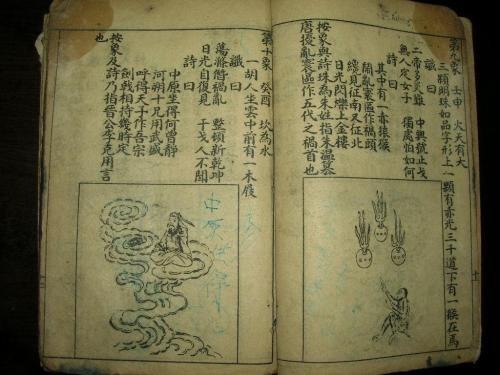 第九象 壬申 火天有大
三顆明珠如品字形上一顆有赤光三十道下有一猴在焉
讖曰
二帝多災難 中興號止戈
無定女子 獨處怕如何
詩曰
其中有一赤猿猴
鬧亂寰區作禍頭
纔見征南又征北
日光閃爍上金樓
按象與詩珠為朱姓猴指朱溫纂
唐擾亂寰區作五代之禍首也
第十象 癸酉 坎為水
一胡人坐雲中前有一木屐
讖曰
蕩滌舊禍亂 整頓新乾坤
日光自復見 干戈人不聞
詩曰
中原生得何曾靜
河朔十兄用武威
呼得天子作吾宗
劍戟相持幾時定
按象及詩乃指晉公李克用言
也